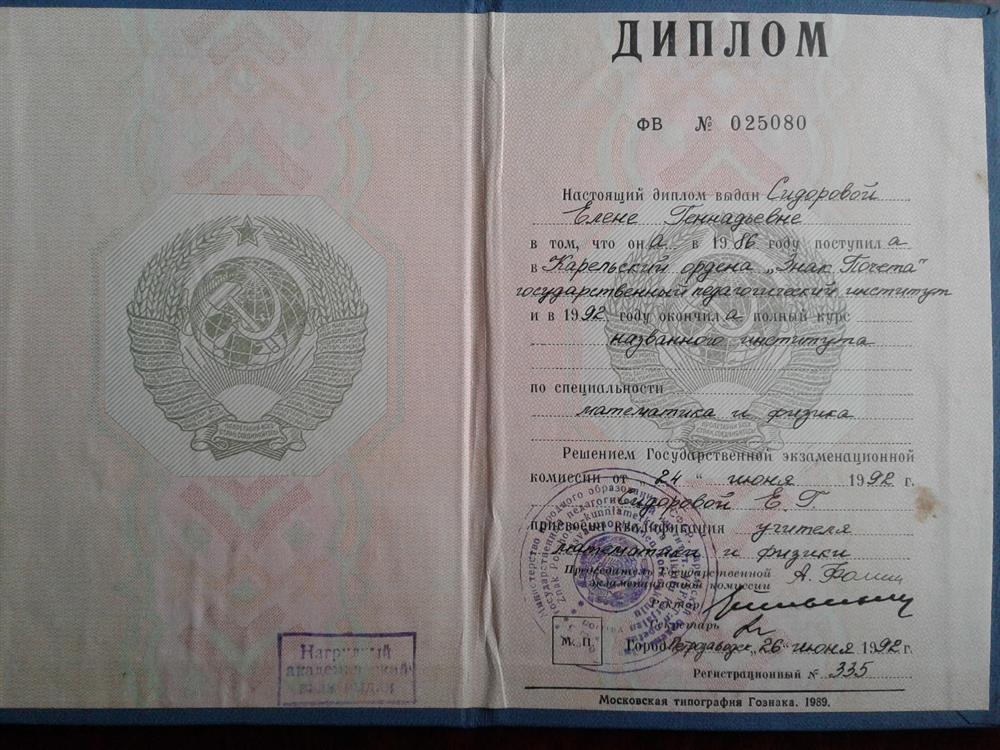 ПРОЛЕТАРИИ ВСЕХ
СТРАН, СОЕДИНЯЙТЕСЬ!
Нагрудный
академический
знак выдан
ДИПЛОМ
ФВ № 025080
Настоящий диплом выдан Сидоровой
Елене Геннадьевне
в том, что она в 1986 году поступила
в Карельский ордена „Знак Почета"
государственный педагогический институт
и в 1992 году окончила полный курс
названного института
по специальности
математика и физика
Решением Государственной экзаменационной
комиссии от „24" июня 1992 г.
Сидоровой Е. Г.
присвоена квалификация учителя
математики и физики
Председатель Государственной
экзаменационной комиссии
Ректор
Секретарь
М. П.
Город Петрозаводск „26" июня 1992 г.
Регистрационный № 335
Московская типография Гознака. 1989.